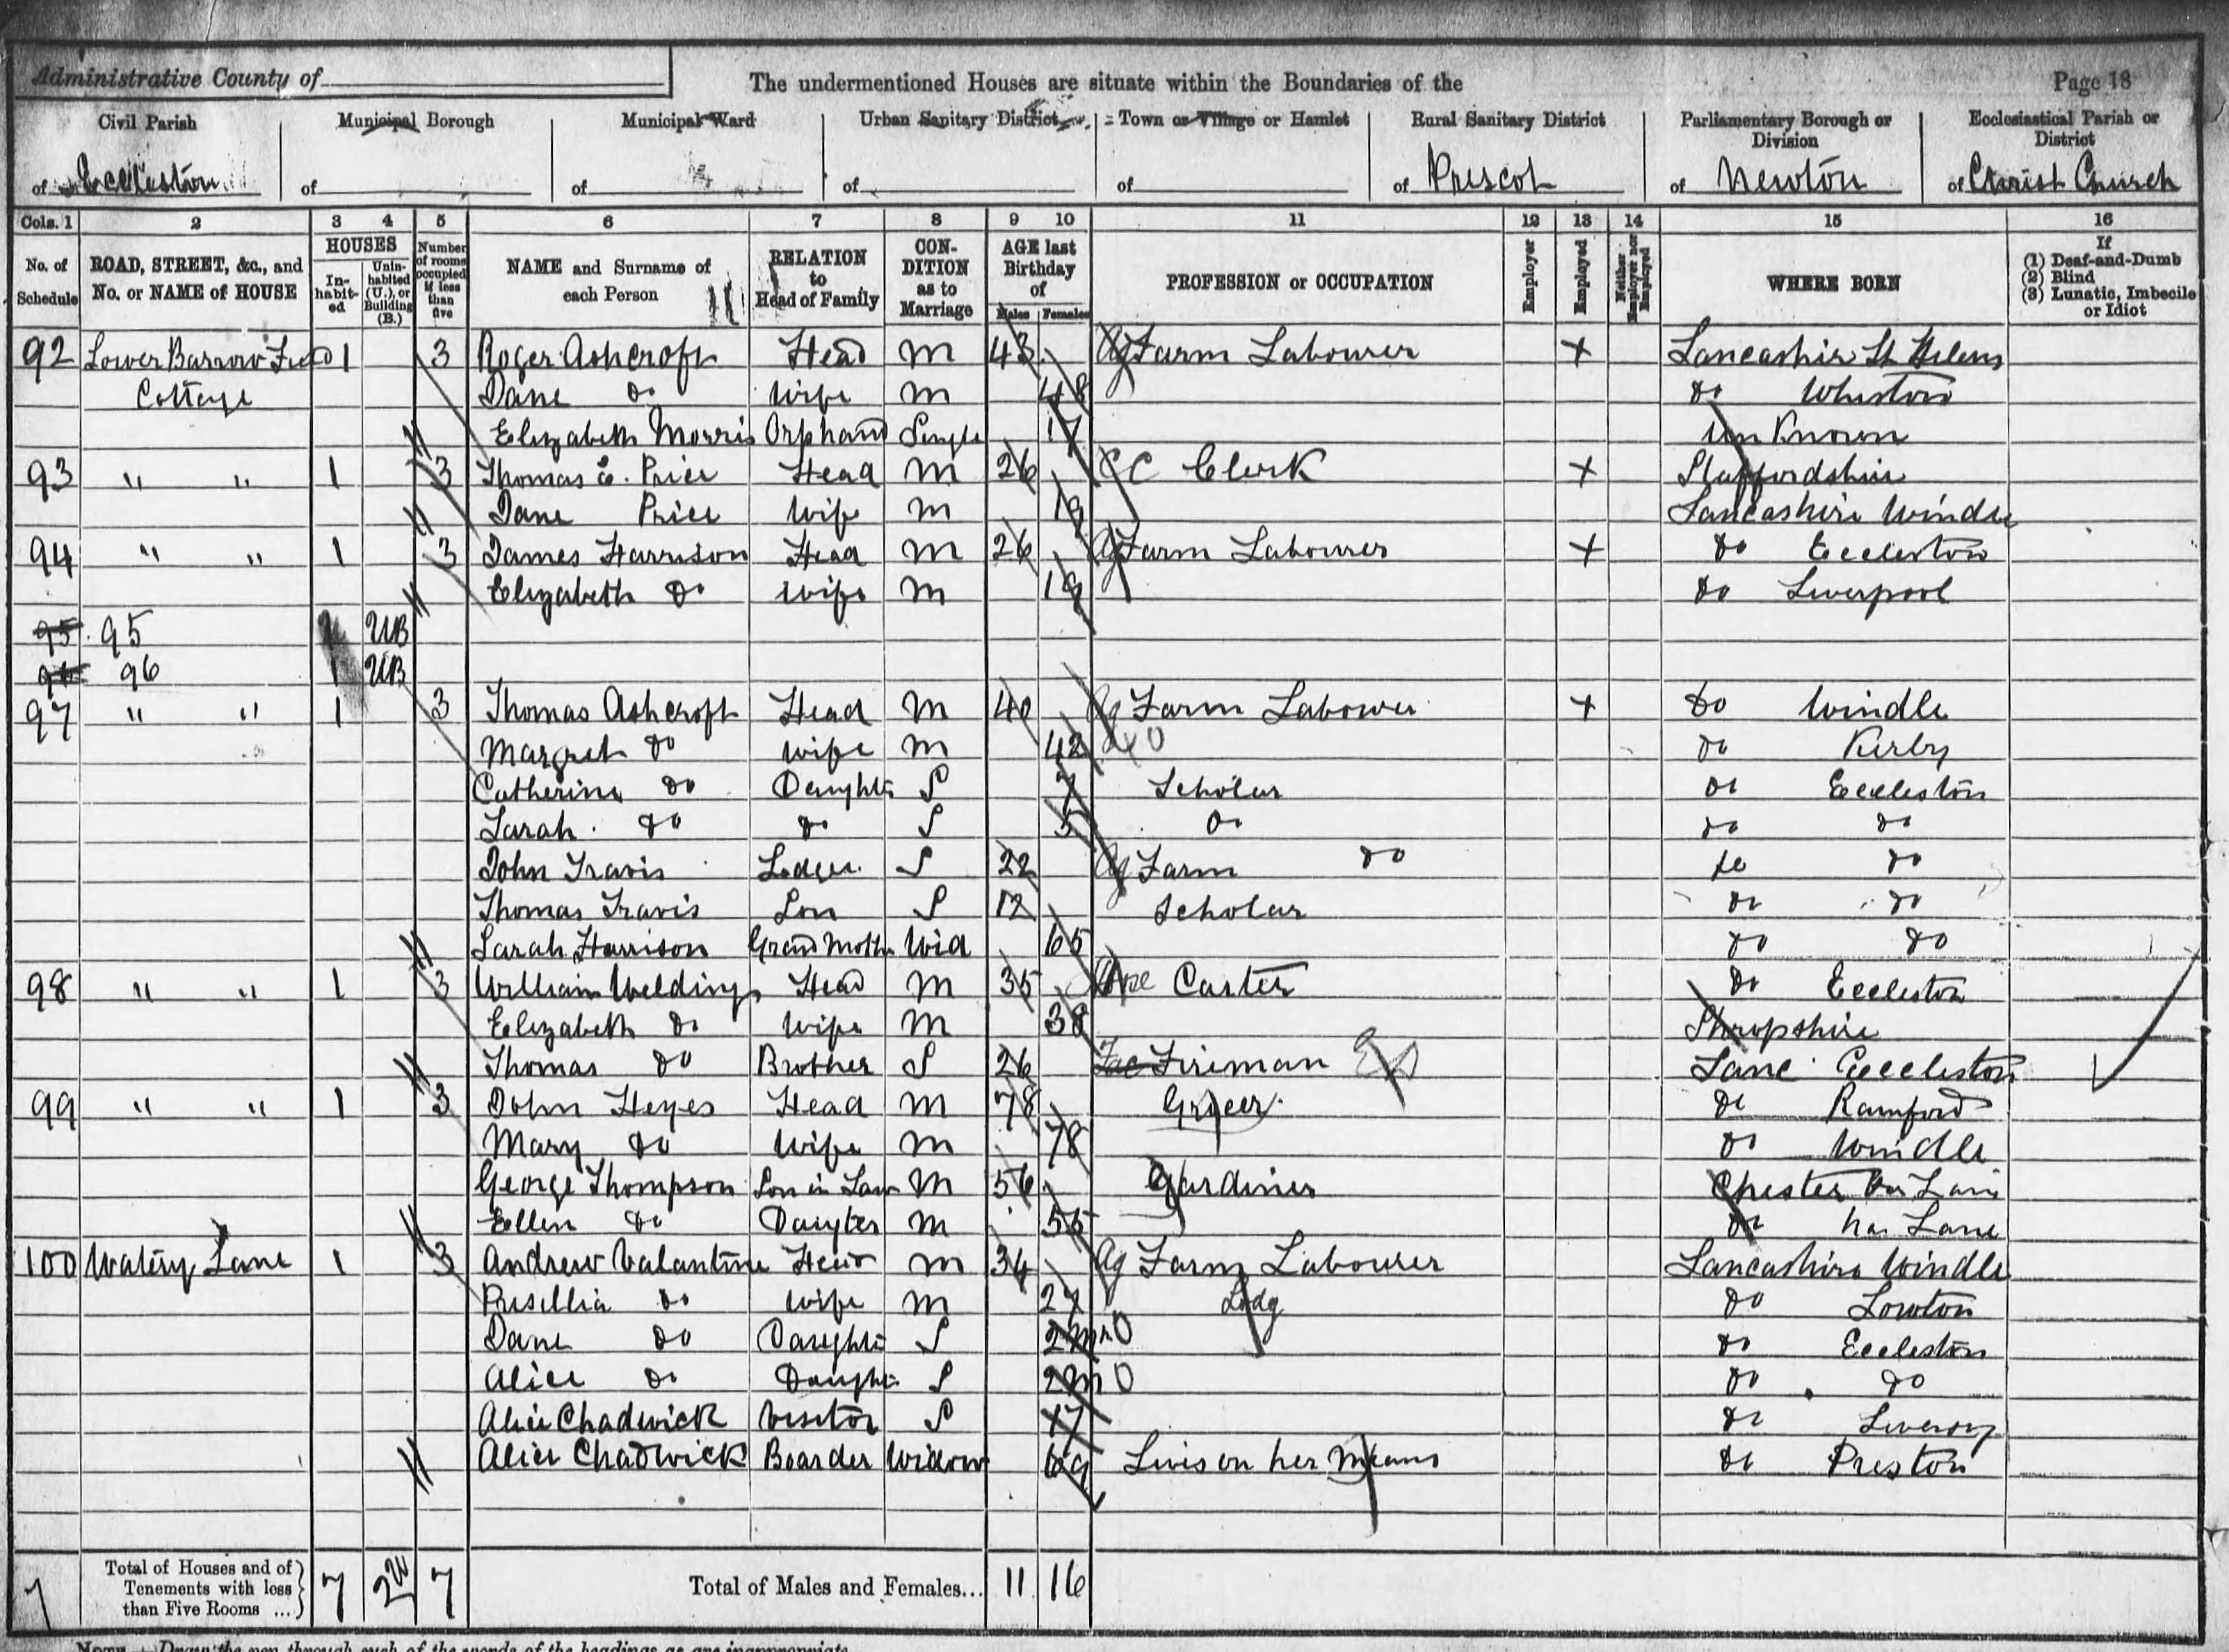 Administrative County of
The undermentioned Houses are situate within the Boundaries of the
Page 18
Civil Parish of Eccleston
Municipal Borough of
Municipal Ward of
Urban Sanitary District of
Town or Village or Hamlet of
Rural Sanitary District of Prescot
Parliamentary Borough or Division of Newton
Ecclesiastical Parish or District of Christ Church
Cols. 1 2 3 4 5 6 7 8 9 10 11 12 13 14 15 16
No. of Schedule
ROAD, STREET, &c., and No. or NAME of HOUSE
HOUSES
In-habit-ed
Unin-habited (U.), or Building (B.)
Number of rooms occupied if less than five
NAME and Surname of each Person
RELATION to Head of Family
CON-DITION as to Marriage
AGE last Birthday of
Males Females
PROFESSION or OCCUPATION
Employer
Employed
Neither Employer nor Employed
WHERE BORN
If (1) Deaf-and-Dumb (2) Blind (3) Lunatic, Imbecile or Idiot
92 Lower Barrow Field 1 3 Roger Ashcroft Head M 43 Ag Farm Labourer X Lancashir St Helens
Cottage Jane do Wife M 48 do Whiston
Elizabeth Morris Orphand Single 17 Un Known
93 " " 1 3 Thomas E. Price Head M 26 CC Clerk X Staffordshire
Jane Price Wife M 19 Lancashire Windle
94 " " 1 3 James Harrison Head M 26 Ag Farm Labourer X do Eccleston
Elizabeth do Wife M 19 do Liverpool
95 95 1 UB
96 96 1 UB
97 " " 1 3 Thomas Ashcroft Head M 40 Ag Farm Labourer X do Windle
Margret do Wife M 42 do Kirby
Catherine do Daughter S 7 Scholar do Eccleston
Sarah do do S 5 do do do
John Travis Lodger S 22 Ag Farm do do do
Thomas Travis Son S 12 Scholar do do
Sarah Harrison Grand Mother Wid 65 do do
98 " " 1 3 William Welding Head M 35 Carter do Eccleston
Elizabeth do Wife M 38 Shropshire
Thomas do Brother S 26 Fireman Lanc Eccleston
99 " " 1 3 John Heyes Head M 78 Grocer do Rainford
Mary do Wife M 78 do Windle
George Thompson Son in Law M 56 Gardiner Chester
Ellen do Daugter M 55 do
100 Watery Lane 1 3 Andrew Valantine Head M 34 Ag Farm Labourer Lancashire Windle
Prisillia do Wife M 27 Lodg do Lowton
Jane do Daughter S 2m 0 do Eccleston
Alice do Daughter S 2m 0 do do
Alice Chadwick Visitor S 17 do
Alice Chadwick Boarder Widow 69 Livis on her Means do Preston
7 Total of Houses and of Tenements with less than Five Rooms ... 7 2U 7 Total of Males and Females... 11 16